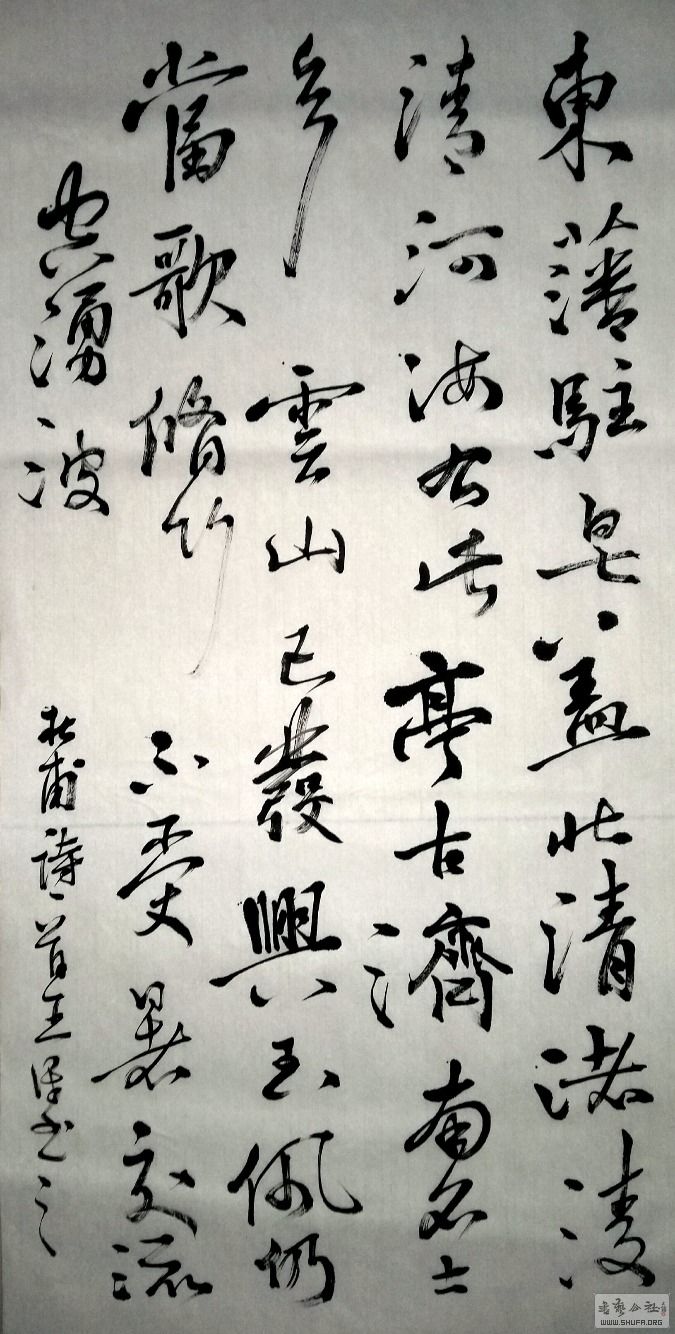 東藩駐皂蓋北清渚凌
清河海右此亭古濟南名士
多雲山已發興玉佩仍
當歌脩竹不受暑交流
空湧波
杜甫詩一首王書之
書藝公社
WWW.SHUFA.ORG